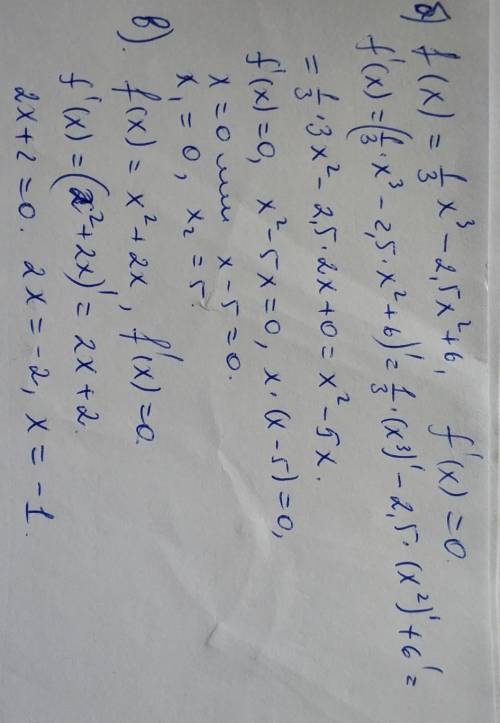 б) f(x) = 1/3 x³ - 2,5x² + 6, f'(x) = 0.
f'(x) = (1/3 · x³ - 2,5 · x² + 6)' = 1/3 · (x³)' - 2,5 · (x²)' + 6' =
= 1/3 · 3x² - 2,5 · 2x + 0 = x² - 5x.
f'(x) = 0, x² - 5x = 0, x · (x - 5) = 0,
x = 0 или x - 5 = 0.
x₁ = 0, x₂ = 5.
в). f(x) = x² + 2x, f'(x) = 0.
f'(x) = (x² + 2x)' = 2x + 2.
2x + 2 = 0. 2x = -2, x = -1.